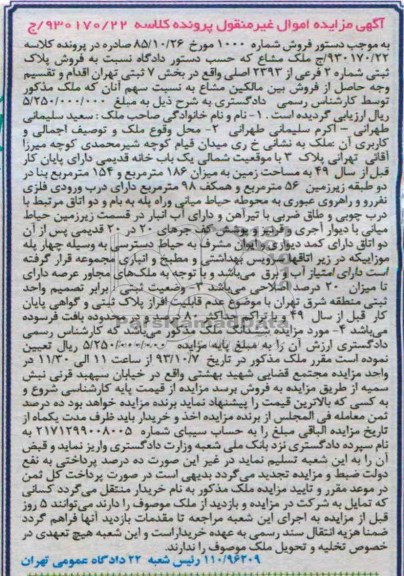 آگهی مزایده اموال غیرمنقول پرونده کلاسه ۹۳۰۱۷۰/۲۲/ج
به موجب دستور فروش شماره ۱۰۰۰ مورخ ۸۵/۱۰/۲۶ صادره در پرونده کلاسه
۹۳۰۱۷۰/۲۲/ج ملک مشاع که حسب دستور دادگاه نسبت به فروش پلاک
ثبتی شماره ۲ فرعی از ۲۳۹۳ اصلی واقع در بخش ۷ ثبتی تهران اقدام و تقسیم
وجه حاصل از فروش بین مالکین مشاع به نسبت سهم آنان که ملک مذکور
توسط کارشناس رسمی دادگستری به شرح ذیل به مبلغ ۵/۲۵۰/۰۰۰/۰۰۰
ریال ارزیابی گردیده است. ۱- نام و نام خانوادگی صاحب ملک: سعید سلیمانی
طهرانی – اکرم سلیمانی طهرانی ۲- محل وقوع ملک و توصیف اجمالی و
کاربری آن: ملک به نشانی خ ری میدان قیام کوچه شیرمحمدی کوچه میرزا
آقائی تهرانی پلاک ۳ با موقعیت شمالی یک باب خانه قدیمی دارای پایان کار
قبل از سال ۴۹ به مساحت زمین به میزان ۱۸۶ مترمربع و ۱۵۴ مترمربع بنا در
دو طبقه زیرزمین ۵۶ مترمربع و همکف ۹۸ مترمربع دارای درب ورودی فلزی
نفررو و راهروی عبوری به محوطه حیاط میانی وراه پله به بام و دو اتاق مرتبط با
درب چوبی و طاق ضربی با تیرآهن و دارای آب انبار در قسمت زیرزمین حیاط
میانی با دیوار آجری و آجرنما و پوشش کف آجرهای ۲۰ در ۲۰ قدیمی پس از آن
دو اتاق دارای کمد دیواری و ایوان مشرف به حیاط دسترسی به وسیله چهار پله
موزاییکه در زیر اتاقها سرویس بهداشتی و مطبخ و انباری مجموعه قرار گرفته
است دارای امتیاز آب و برق می‌باشد و با توجه به ملک‌های مجاور عرصه دارای
تا میزان ۲۰ درصد اصلاحی می‌باشد ۳- وضعیت ثبتی: برابر تصمیم واحد
ثبتی منطقه شرق تهران با موضوع عدم قابلیت افراز پلاک ثبتی و گواهی پایان
کار قبل از سال ۴۹ و با تراکم حداکثر ۸۰ درصد و در محدوده بافت فرسوده
می‌باشد ۴- مورد مزایده ششدانگ ملک مذکور می‌باشد که کارشناس رسمی
دادگستری ارزش آن را به مبلغ پایه مزایده ۵/۲۵۰/۰۰۰/۰۰۰ ریال تعیین
نموده است مقرر ملک مذکور در تاریخ ۹۳/۱۰/۷ از ساعت ۱۱ الی ۱۱/۳۰ در
واحد مزایده مجتمع قضایی شهید بهشتی واقع در خیابان سپهبد قرنی نبش
سمیه از طریق مزایده به فروش برسد مزایده از قیمت پایه کارشناسی شروع و
به کسی که بالاترین قیمت را پیشنهاد نماید برنده مزایده خواهد بود ده درصد
ثمن معامله فی المجلس از برنده مزایده اخذ و خریدار باید ظرف مدت یکماه از
تاریخ مزایده الباقی مبلغ را به حساب سیبای شماره ۲۱۷۱۲۹۹۰۰۸۰۰۵ به
نام سپرده دادگستری نزد بانک ملی شعبه وزارت دادگستری واریز نماید و قبض
آن را به این شعبه تسلیم نماید در غیر این صورت ده درصد پرداختی به نفع
دولت ضبط و مزایده تجدید می‌گردد بدیهی است در صورت پرداخت کل ثمن
در موعد مقرر و تایید مزایده ملک مذکور به نام خریدار منتقل می‌گردد کسانی
که تمایل به شرکت در مزایده و بازدید از ملک موصوف را دارند می‌توانند ۵ روز
قبل از مزایده به اجرای این شعبه مراجعه تا مقدمات بازدید آنها فراهم گردد
ضمنا هزینه انتقال سند رسمی به عهده خریداراست و این شعبه هیچ تعهدی در
خصوص تخلیه و تحویل ملک موصوف را ندارند.
۱۱۰/۹۶۲۰۹ رئیس شعبه ۲۲ دادگاه عمومی تهران